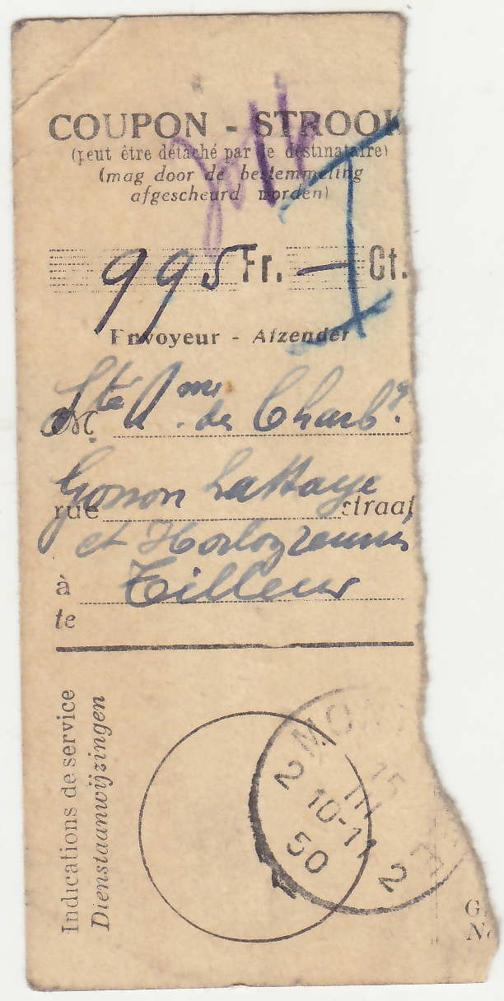 COUPON - STROOK
(peut être détaché par le destinataire)
(mag door de bestemmeling
afgescheurd worden)
995 Fr. — Ct.
Envoyeur - Afzender
M Sté Ame de Charb.
rue Gosson La Haye straat
et Horloz réunis
à Tilleur
te
Indications de service
Dienstaanwijzingen
MON
2 15 III 10-11 50
2
G.
No